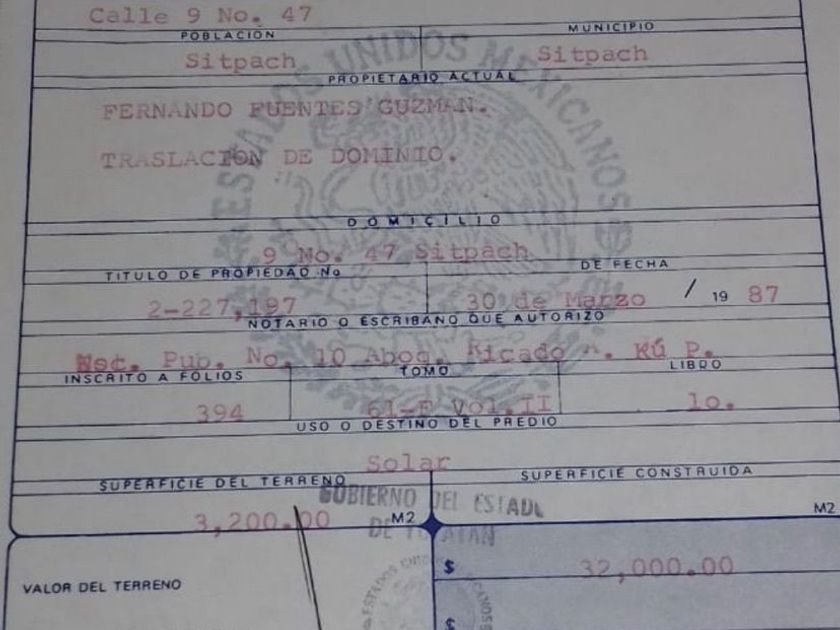 Calle 9 No. 47
POBLACION MUNICIPIO
Sitpach Sitpach
PROPIETARIO ACTUAL
FERNANDO FUENTES GUZMAN.
TRASLACION DE DOMINIO.
ESTADOS UNIDOS MEXICANOS
DOMICILIO
9 No. 47 Sitpach
TITULO DE PROPIEDAD No DE FECHA
2-227,197 30 de Marzo / 19 87
NOTARIO O ESCRIBANO QUE AUTORIZO
Not. Pub. No. 10 Abog. Ricado A. Kú P.
INSCRITO A FOLIOS TOMO LIBRO
394 61-F Vol.II 1o.
USO O DESTINO DEL PREDIO
Solar
SUPERFICIE DEL TERRENO SUPERFICIE CONSTRUIDA
GOBIERNO DEL ESTADO
3,200.00 M2 M2
DE YUCATAN
VALOR DEL TERRENO $ 32,000.00
ESTADOS UNIDOS MEXICANOS
$